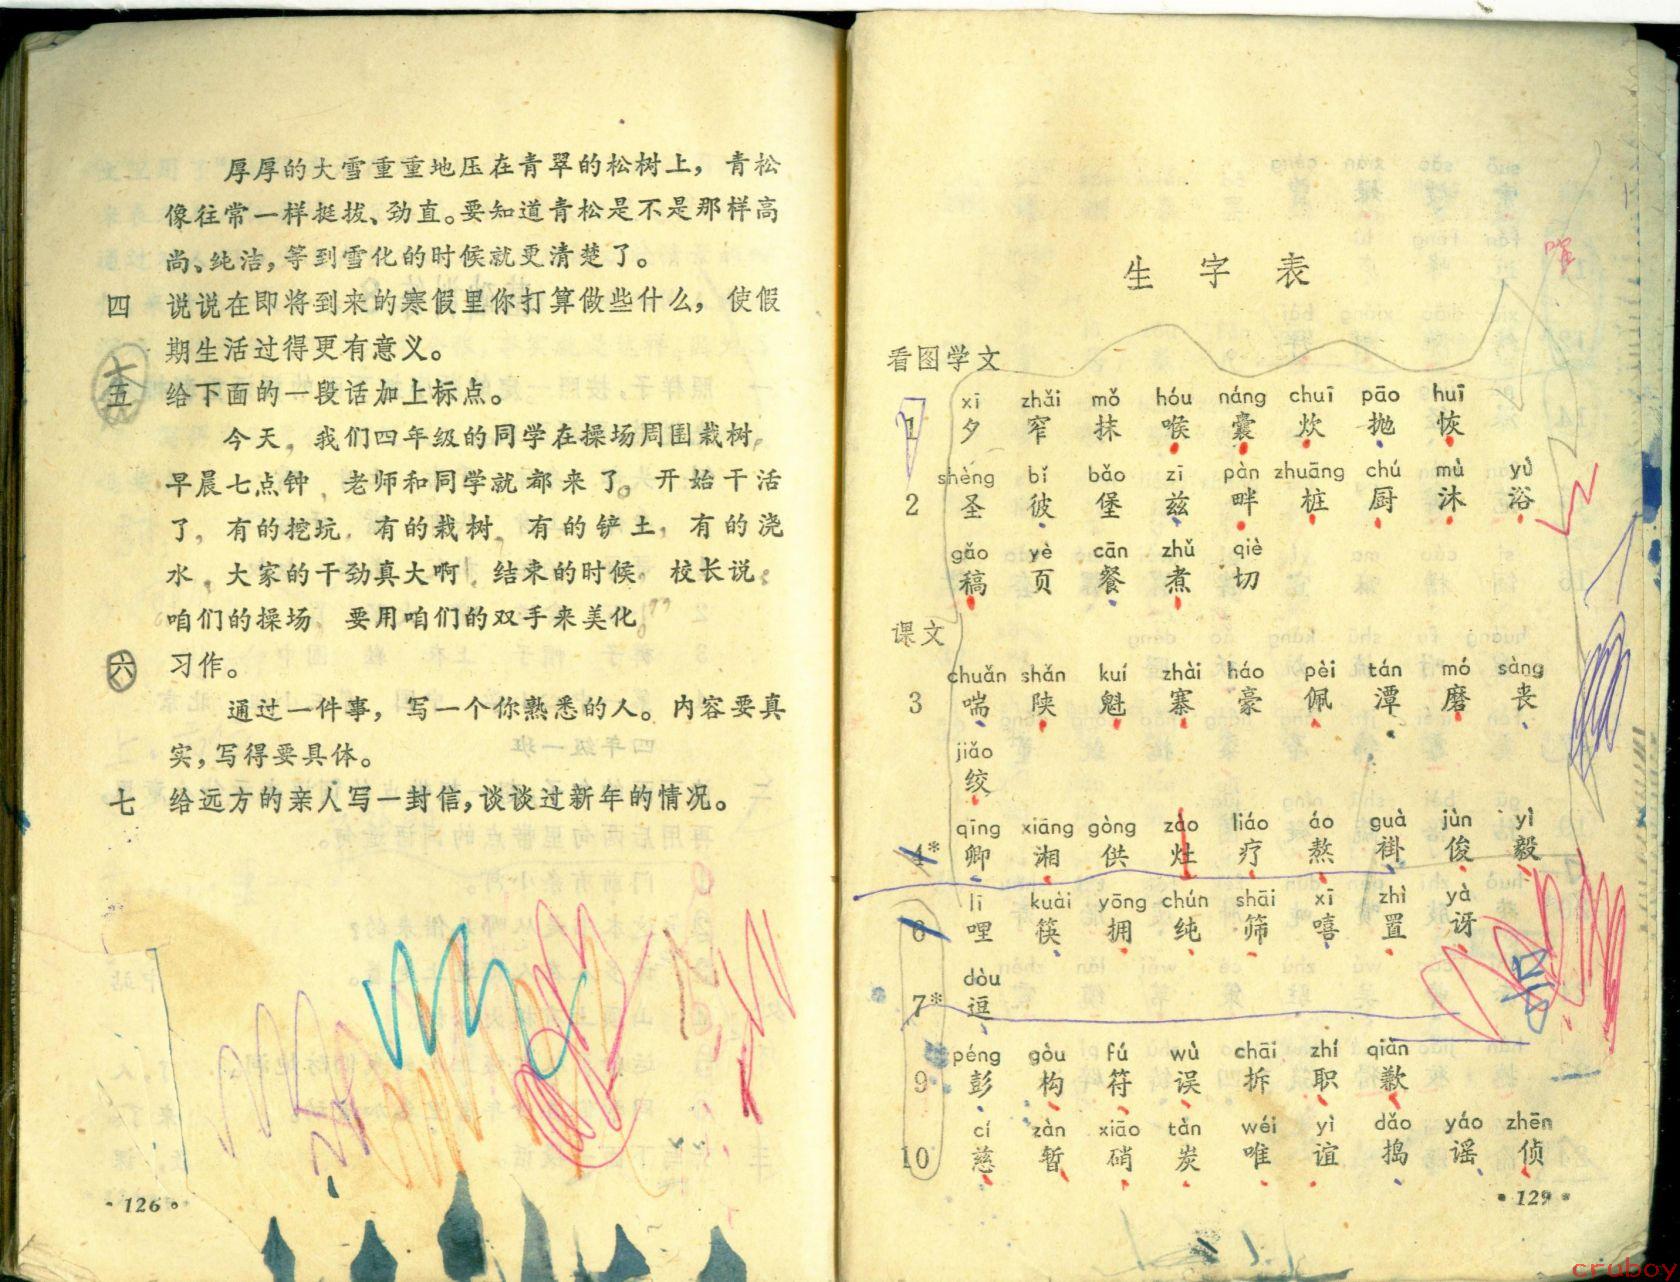 厚厚的大雪重重地压在青翠的松树上，青松
像往常一样挺拔、劲直。要知道青松是不是那样高
尚、纯洁，等到雪化的时候就更清楚了。
四 说说在即将到来的寒假里你打算做些什么，使假
期生活过得更有意义。
五 给下面的一段话加上标点。
今天，我们四年级的同学在操场周围栽树。
早晨七点钟 老师和同学就都来了。开始干活
了，有的挖坑，有的栽树，有的铲土，有的浇
水，大家的干劲真大啊！结束的时候，校长说：
咱们的操场 要用咱们的双手来美化
六 习作。
通过一件事，写一个你熟悉的人。内容要真
实，写得要具体。
七 给远方的亲人写一封信，谈谈过新年的情况。
·126·
生字表
看图学文
xī zhǎi mǒ hóu náng chuī pāo huī
1 夕 窄 抹 喉 囊 炊 抛 恢
shèng bǐ bǎo zī pàn zhuāng chú mù yù
2 圣 彼 堡 兹 畔 桩 厨 沐 浴
gǎo yè cān zhǔ qiè
稿 页 餐 煮 切
课文
chuǎn shǎn kuí zhài háo pèi tán mó sàng
3 喘 陕 魁 寨 豪 佩 潭 磨 丧
jiǎo
绞
qīng xiāng gòng zào liáo áo guà jùn yì
4* 卿 湘 供 灶 疗 熬 褂 俊 毅
lī kuài yōng chún shāi xī zhì yà
6 哩 筷 拥 纯 筛 嘻 置 讶
dòu
7* 逗
péng gòu fú wù chāi zhí qiàn
9 彭 构 符 误 拆 职 歉
cí zàn xiāo tàn wéi yì dǎo yáo zhēn
10 慈 暂 硝 炭 唯 谊 捣 谣 侦
·129·
cruboy